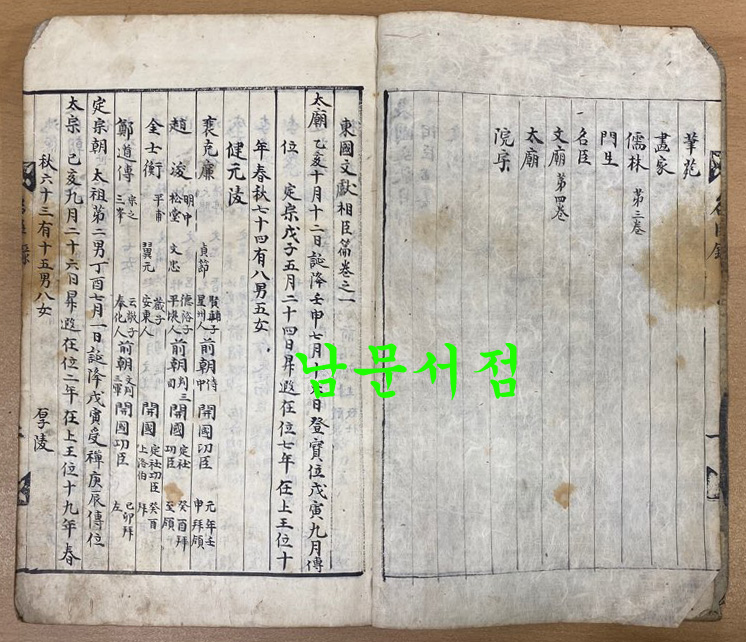 筆苑
畫家
儒林 第三卷
門生
名臣
文廟 第四卷
太廟
院享
東國文獻相臣篇卷之一
太廟 乙亥十月十二日誕降壬申七月十六日登寶位戊寅九月傳
位 定宗戊子五月二十四日昇遐在位七年 在上王位十
年春秋七十四有八男五女
健元陵
裵克廉 明中 貞節 賢輔子 星州人 前朝 侍中 開國功臣 元年壬申拜領
趙浚 松堂 文忠 德裕子 平壤人 前朝 判三司 開國功臣 定社 癸酉拜 至領
金士衡 平甫 翼元 蕆子 安東人 開國 定社功臣 上洛伯 癸酉拜
鄭道傳 宗之 三峯 云敬子 奉化人 前朝 三軍 開國功臣 己卯拜左
定宗朝 太祖第二男丁酉七月一日誕降戊寅受禪庚辰傳位
太宗 己亥九月二十六日昇遐在位二年 在上王位十九年春
秋六十三有十五男八女 厚陵
남문서점